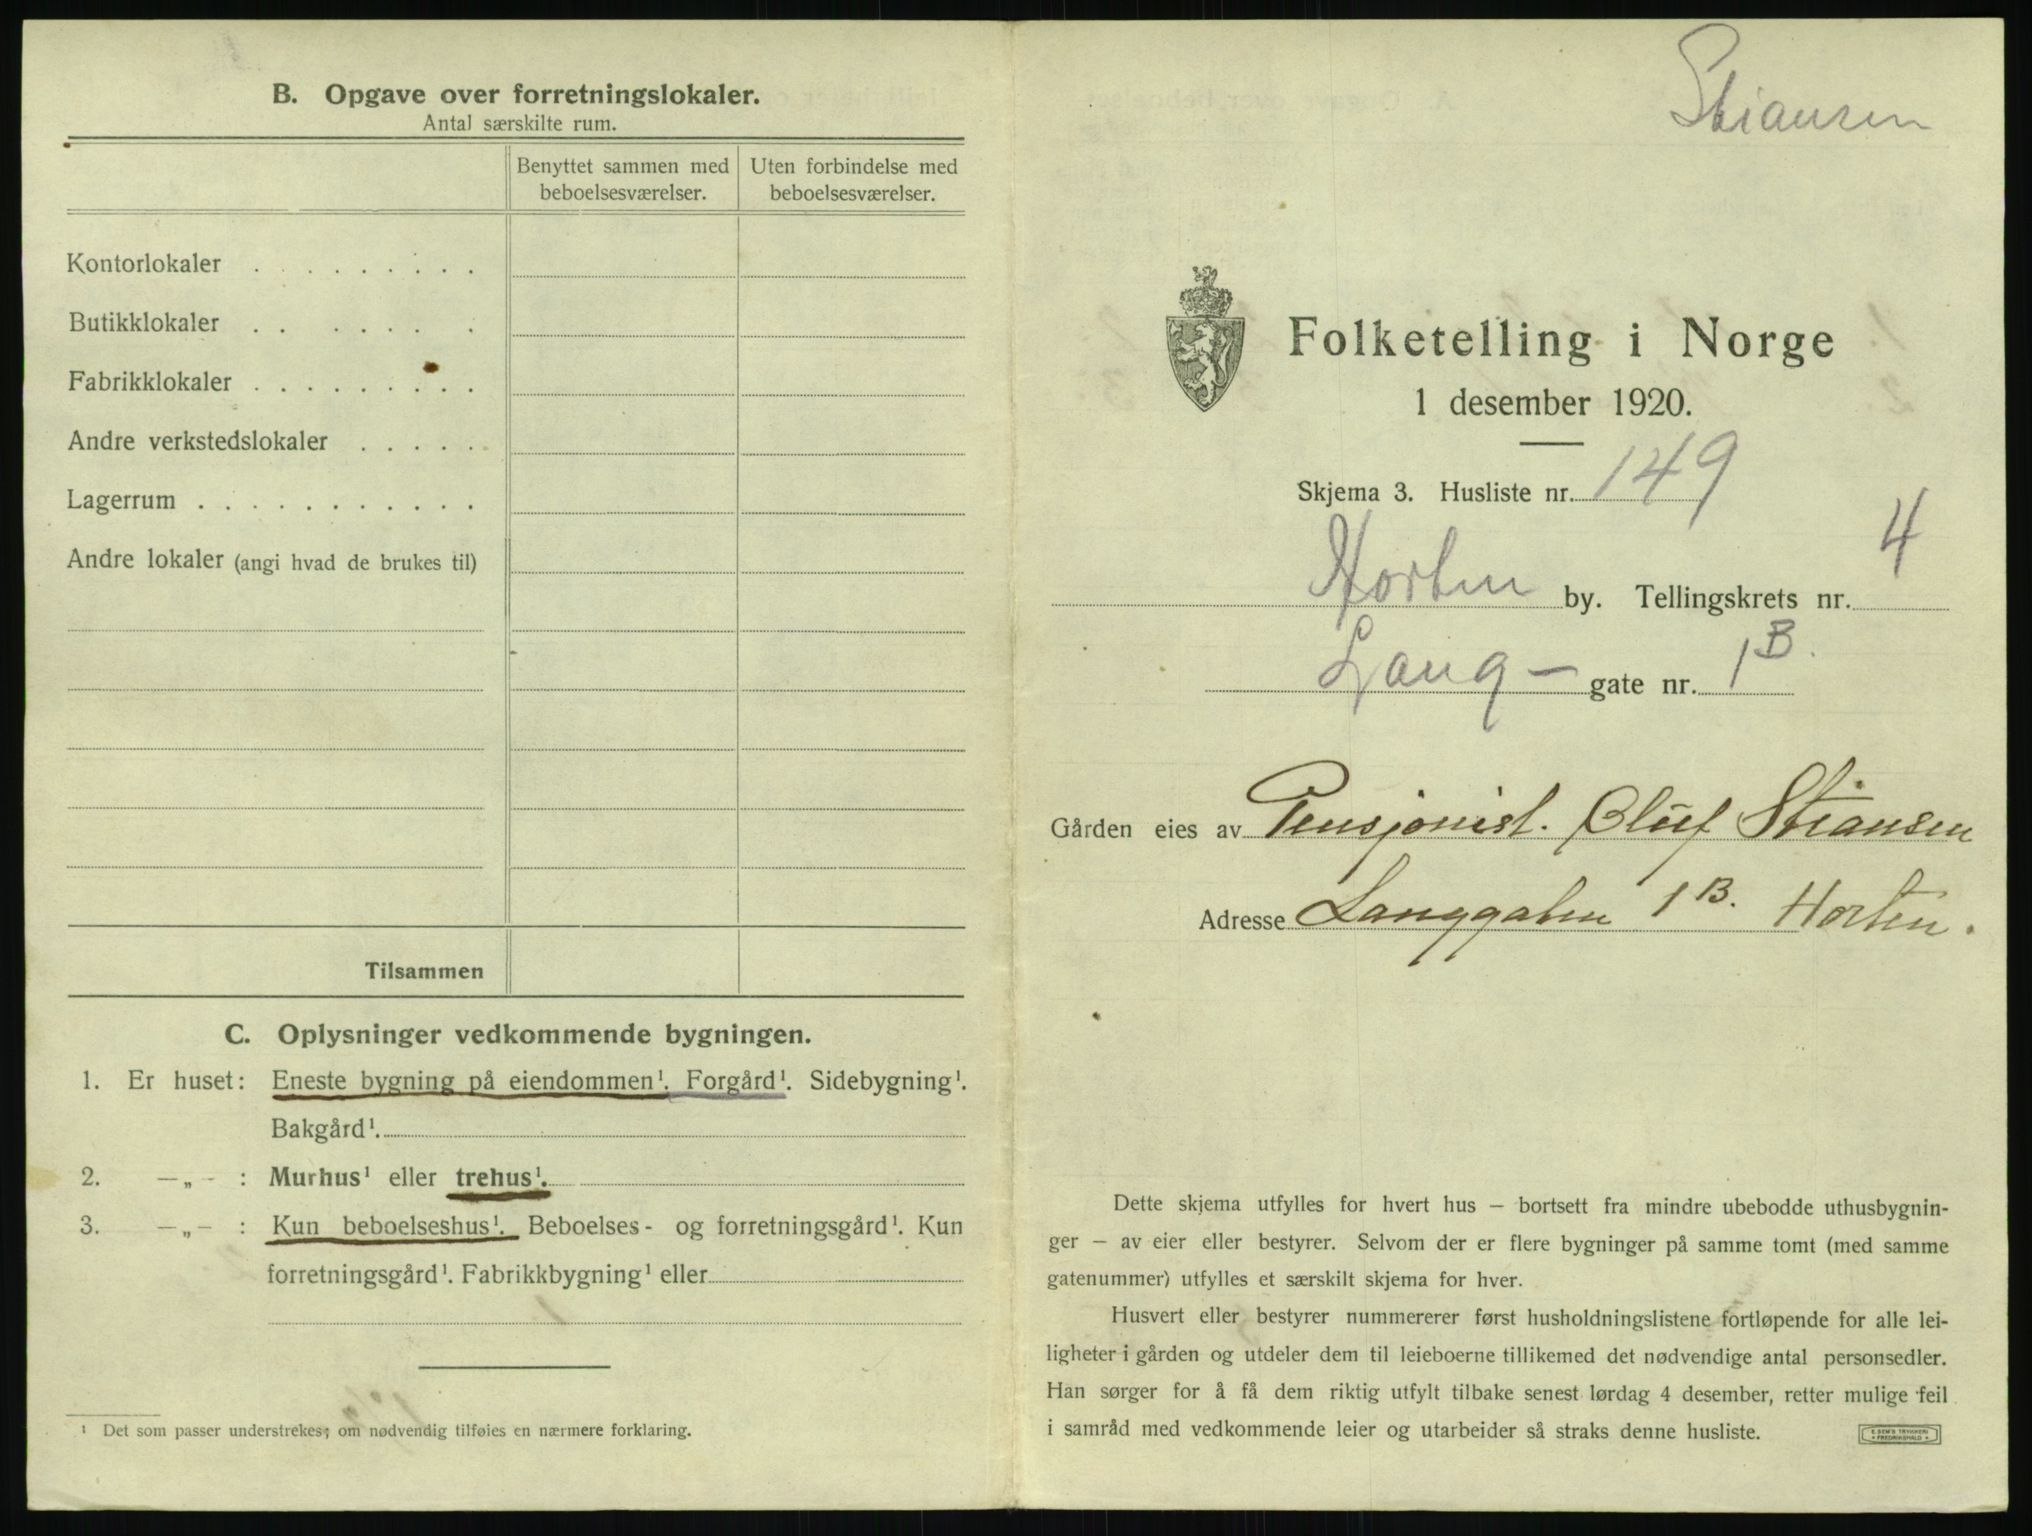 B. Opgave over forretningslokaler.
Antal særskilte rum.
Benyttet sammen med beboelsesværelser.
Uten forbindelse med beboelsesværelser.
Kontorlokaler . . . . . . . . .
Butikklokaler . . . . . . .
Fabrikklokaler . . . . . . . . .
Andre verkstedslokaler . . . . .
Lagerrum . . . . . . . . . . .
Andre lokaler (angi hvad de brukes til)
Tilsammen
C. Oplysninger vedkommende bygningen.
1. Er huset: Eneste bygning på eiendommen¹. Forgård¹. Sidebygning¹.
Bakgård¹.
2. —„— : Murhus¹ eller trehus¹.
3. —„— : Kun beboelseshus¹. Beboelses- og forretningsgård¹. Kun
forretningsgård¹. Fabrikkbygning¹ eller
¹ Det som passer understrekes; om nødvendig tilføies en nærmere forklaring.
Stiansen
Folketelling i Norge
1 desember 1920.
Skjema 3. Husliste nr. 149
Horten by. Tellingskrets nr. 4
Lang- gate nr. 1B.
Gården eies av Pensjonist. Oluf Stiansen
Adresse Langgaten 1B. Horten.
Dette skjema utfylles for hvert hus — bortsett fra mindre ubebodde uthusbygnin-
ger — av eier eller bestyrer. Selvom der er flere bygninger på samme tomt (med samme
gatenummer) utfylles et særskilt skjema for hver.
Husvert eller bestyrer nummererer først husholdningslistene fortløpende for alle lei-
ligheter i gården og utdeler dem til leieboerne tillikemed det nødvendige antal personsedler.
Han sørger for å få dem riktig utfylt tilbake senest lørdag 4 desember, retter mulige feil
i samråd med vedkommende leier og utarbeider så straks denne husliste.
E. SEM'S TRYKKERI
FREDRIKSHALD